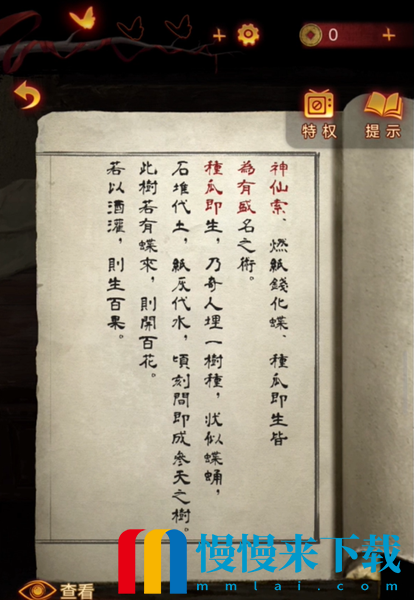 0
特权
提示
神仙索、燃紙錢化蝶、種瓜即生皆
為有盛名之術。
種瓜即生，乃奇人埋一樹種，狀似蝶蛹，
石堆代土，紙灰代水，頃刻間即成參天之樹。
此樹若有蝶來，則開百花。
若以酒灌，則生百果。
查看
慢慢来下载
mmlai.com